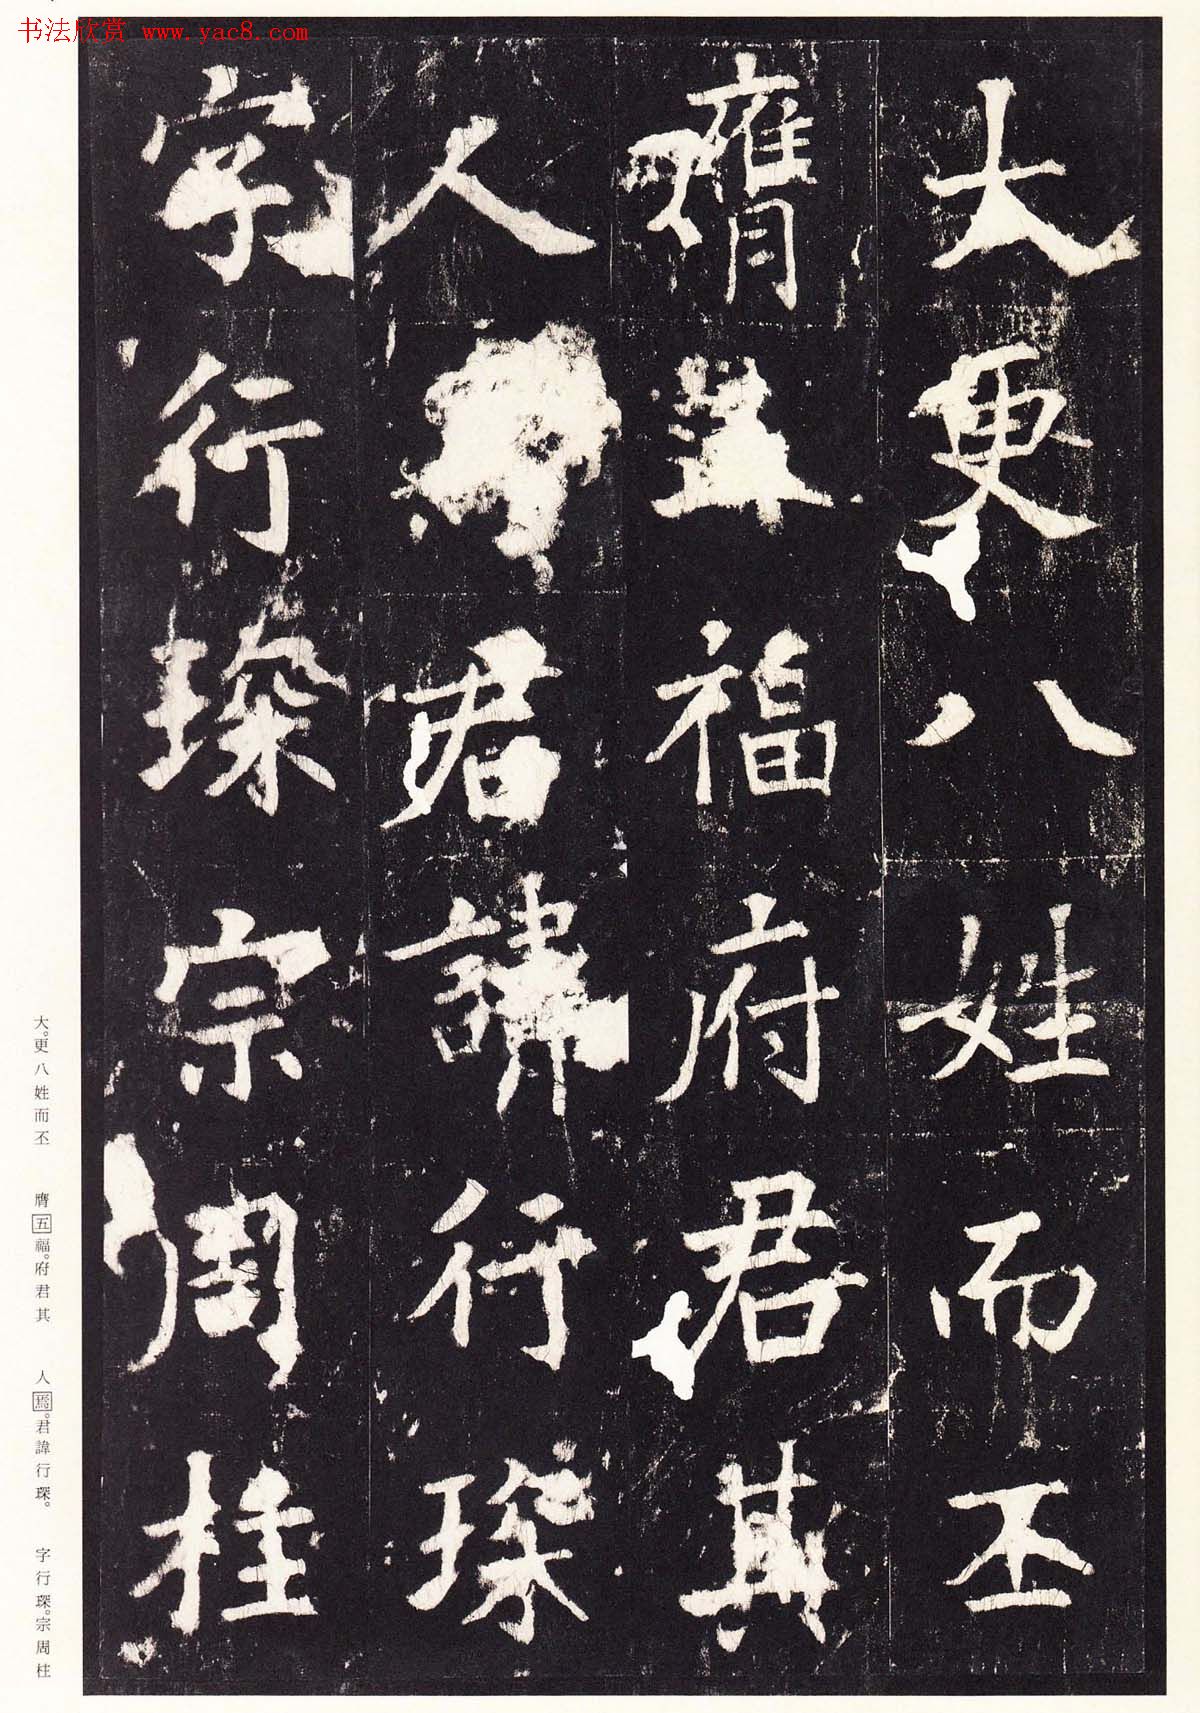 书法欣赏 www.yac8.com
大更八姓而丕
膺五福府君其
人君諱行琛
字行琛宗周柱
大。更八姓而丕 膺五福。府君其 人焉。君諱行琛。 字行琛。宗周柱